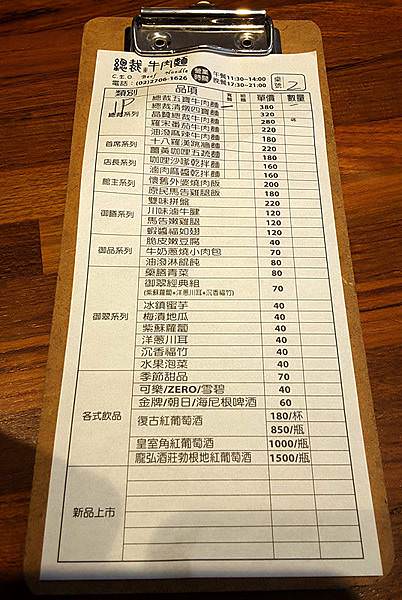 總裁牛肉麵
C.E.O. Beef Noodle
電話:(02)2706-1626
營業時間 午餐11:30~14:00
晚餐17:30~21:00
桌號 2
類別 品項 單價 數量
1P
總裁系列
總裁五寶牛肉麵 380
總裁清燉四寶麵 320
品賢總裁牛肉麵 280
羅宋番茄牛肉麵 220
油潑麻辣牛肉麵 280
首席系列
十八羅漢跳牆麵 220
薑黃咖哩五蔬麵 180
店長系列
咖哩沙嗲乾拌麵 180
滷肉麻醬乾拌麵 160
館主系列
懷舊外婆燒肉飯 200
原民馬告雞腿飯 180
御膳系列
雙味拼盤 220
川味滷牛腱 120
馬告嫩雞腿 120
蝦醬福如翅 120
御品系列
脆皮嫩豆腐 40
牛奶蔥燒小肉包 70
油潑淋餛飩 80
藥膳青菜 80
御翠經典組
(紫蘇蘿蔔+洋蔥川耳+沉香福竹) 70
御翠系列
冰鎮蜜芋 40
梅漬地瓜 40
紫蘇蘿蔔 40
洋蔥川耳 40
沉香福竹 40
水果泡菜 40
各式飲品
季節甜品 70
可樂/ZERO/雪碧 40
金牌/朝日/海尼根啤酒 60
復古紅葡萄酒 180/杯
850/瓶
皇室角紅葡萄酒 1000/瓶
龐弘酒莊勃根地紅葡萄酒 1500/瓶
新品上市